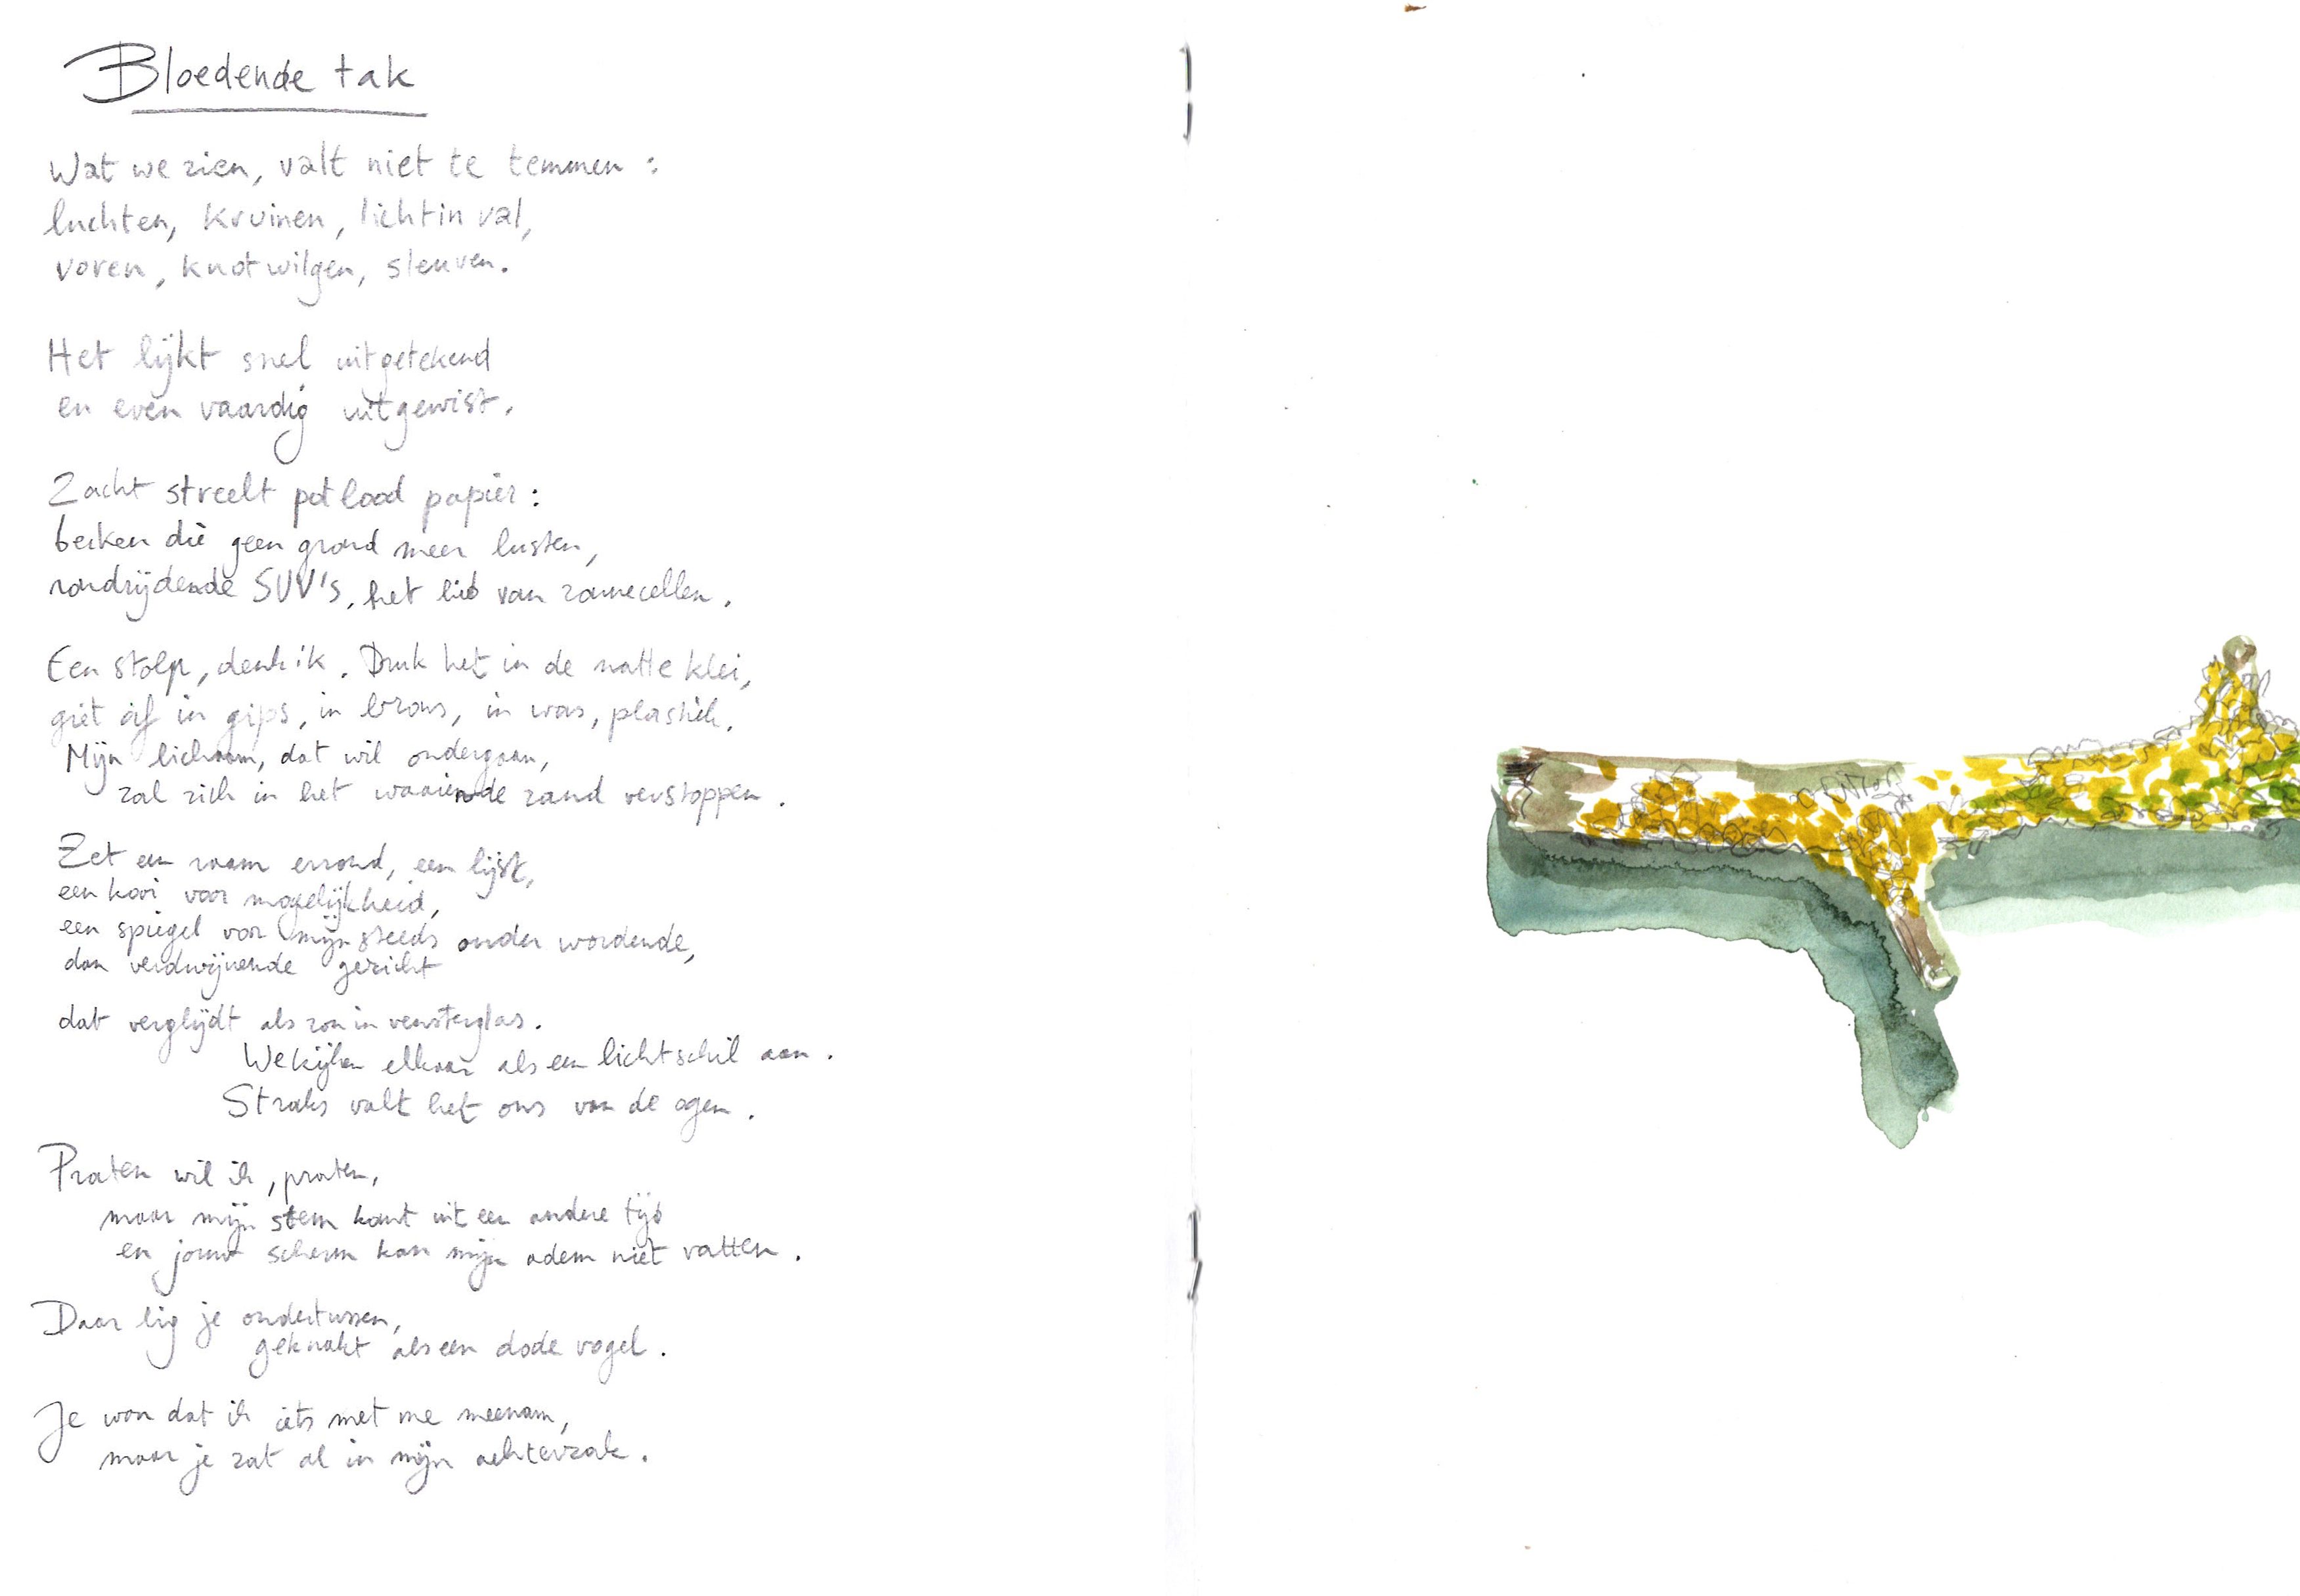 Bloedende tak
Wat we zien, valt niet te temmen :
luchten, kruinen, lichtinval,
voren, knotwilgen, sleuven.
Het lijkt snel uitgetekend
en even vaardig uitgewist.
Zacht streelt potlood papier :
beken die geen grond meer lusten,
rondrijdende SUV's, het lied van zonnecellen.
Een stolp, denk ik. Druk het in de natte klei,
giet af in gips, in brons, in was, plastiek.
Mijn lichaam, dat wil ondergaan,
zal zich in het waaiende zand verstoppen.
Zet een raam errond, een lijst,
een kooi voor mogelijkheid,
een spiegel voor mijn steeds ouder wordende,
dan verdwijnende gezicht
dat verglijdt als zon in vensterglas.
We kijken elkaar als een lichtschil aan.
Straks valt het ons van de ogen.
Praten wil ik, praten,
maar mijn stem komt uit een andere tijd
en jouw scherm kan mijn adem niet vatten.
Daar lig je ondertussen,
geknakt als een dode vogel.
Je wou dat ik iets met me meenam,
maar je zat al in mijn achterzak.